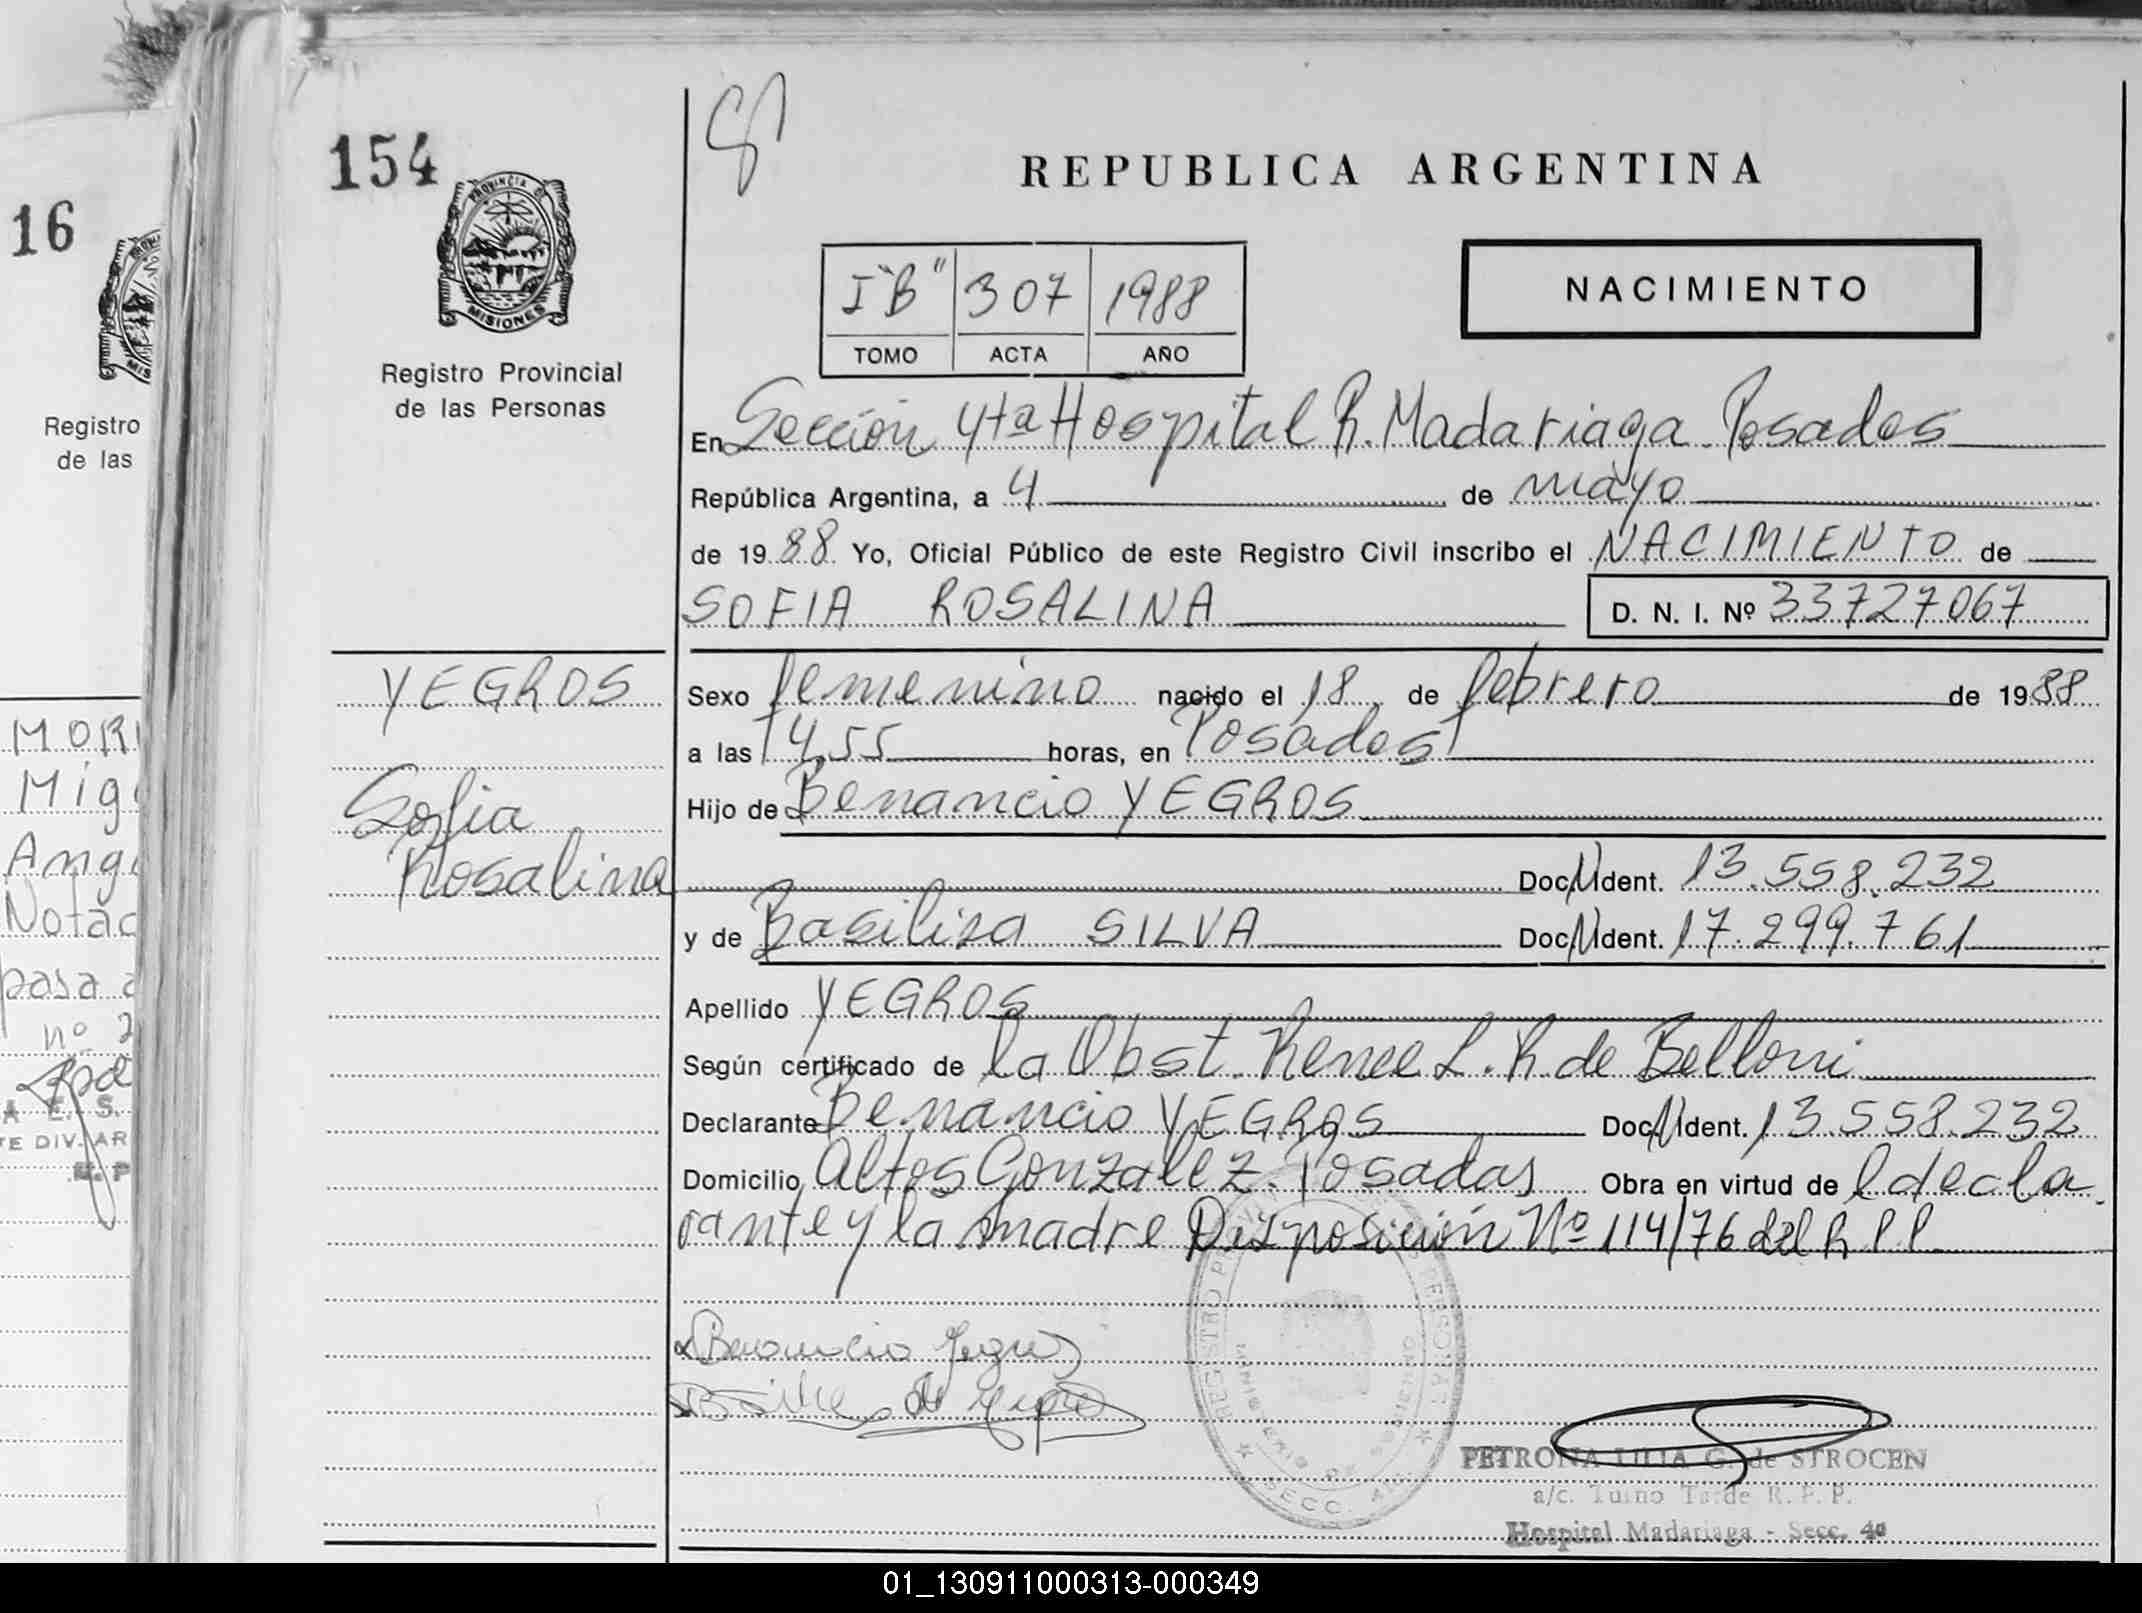 154
PROVINCIA D
MISIONES
Registro Provincial
de las Personas
16
Registro
de las
REPUBLICA ARGENTINA
I "B" 307 1988
TOMO ACTA AÑO
NACIMIENTO
En Sección 4ta Hospital R. Madariaga Posadas
República Argentina, a 4 de mayo
de 1988 Yo, Oficial Público de este Registro Civil inscribo el NACIMIENTO de
SOFIA ROSALINA D. N. I. Nº 33727067
YEGROS
Sofia
Rosalina
Sexo femenino nacido el 18 de febrero de 1988
a las 14,55 horas, en Posadas
Hijo de Benancio YEGROS
Doc. N Ident. 13.558.232
y de Basiliza SILVA Doc. N Ident. 17.299.761
Apellido YEGROS
Según certificado de la Obst. Renee L. R. de Belloni
Declarante Benancio YEGROS Doc. N Ident. 13.558.232
Domicilio Altos Gonzalez. Posadas Obra en virtud de l decla
rante y la madre Disposición Nº 114/76 del R P P
Benancio Yegros
de Yegros
PETRONA LILIA G. de STROCEN
a/c. Turno Tarde R. P. P.
Hospital Madariaga - Secc. 4ª
MOR
Mig
Ang
Nota
pasa a
nº 2
A E. S.
TE DIV. AR
01_130911000313-000349